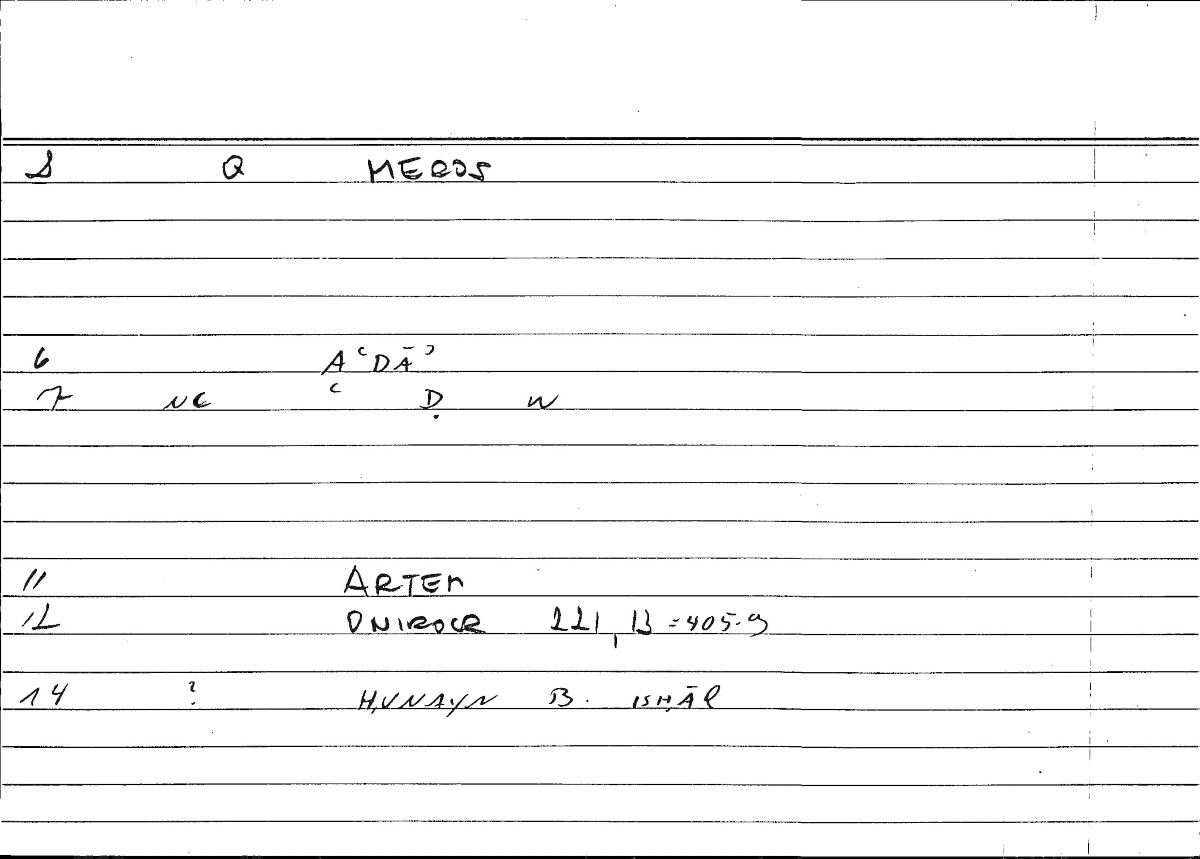 S Q MEROS
6 AʿDĀʾ
7 NC ʿ Ḍ W
11 ARTEM
12 ONIROCR 221,13=405.9
14 ? ḤUNAYN B. ISḤĀQ